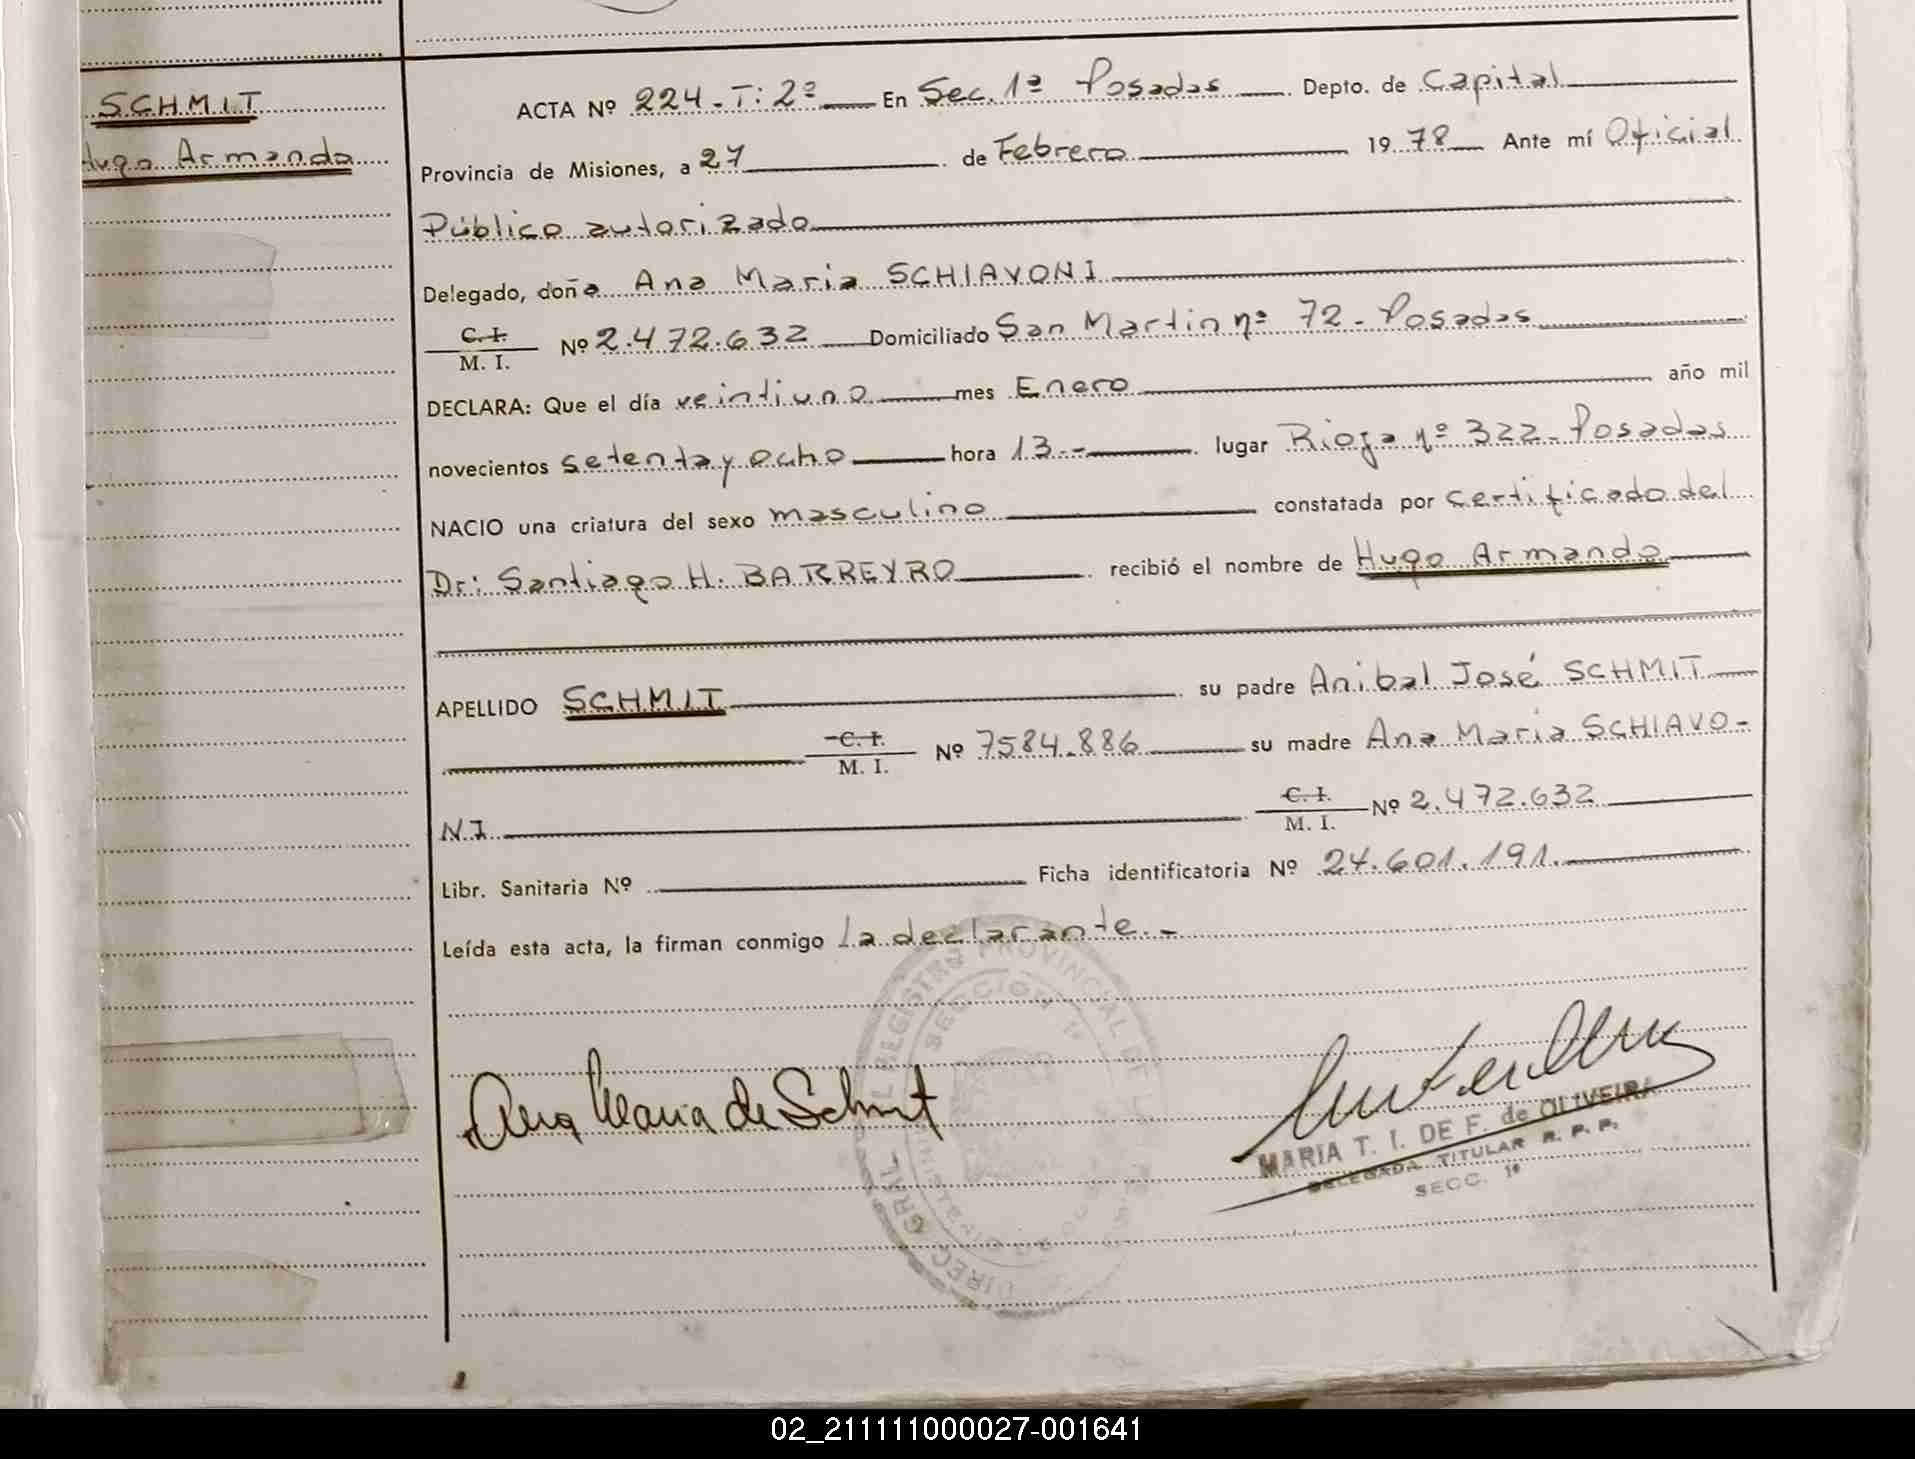 SCHMIT
Hugo Armando
ACTA Nº 224-T: 2º En Sec. 1ª Posadas Depto. de Capital
Provincia de Misiones, a 27 de Febrero 1978 Ante mí Oficial
Público autorizado
Delegado, doña Ana Maria SCHIAVONI
C. I. / M. I. Nº 2.472.632 Domiciliado San Martin nº 72 - Posadas
DECLARA: Que el día veintiuno mes Enero año mil
novecientos setenta y ocho hora 13.- lugar Rioja nº 322 - Posadas
NACIO una criatura del sexo masculino constatada por certificado del
Dr: Santiago H. BARREYRO recibió el nombre de Hugo Armando
APELLIDO SCHMIT su padre Anibal José SCHMIT
C. I. / M. I. Nº 7584.886 su madre Ana Maria SCHIAVO-
NI C. I. / M. I. Nº 2.472.632
Libr. Sanitaria Nº Ficha identificatoria Nº 24.601.191.
Leída esta acta, la firman conmigo la declarante.-
Ana Maria de Schmit
MARIA T. I. DE F. de OLIVEIRA
DELEGADA TITULAR R. P. P.
SECC. 1ª
DIREC GRAL REGISTRO PROVINCIAL DE
SECCION 1ª
02_211111000027-001641